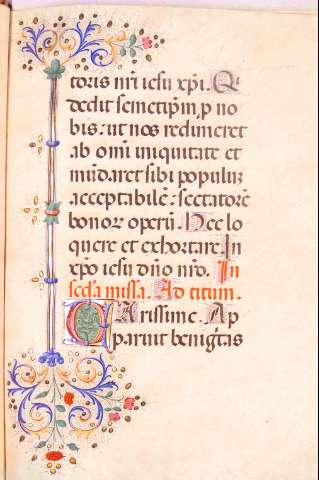 toris nr̃i iesu xp̃i. Q̃
dedit semetip̃m, p no
bis: ut nos redimeret
ab om̃i iniquitate et
mũdaret sibi populuꝫ
acceptabilẽ: sectatorẽ
bonoꝝ operũ. Hec lo
quere et exhortare. In
xp̃o iesu dño nr̃o. In
scd̃a missa. Ad titum.
CArissime. Ap
paruit benigtas